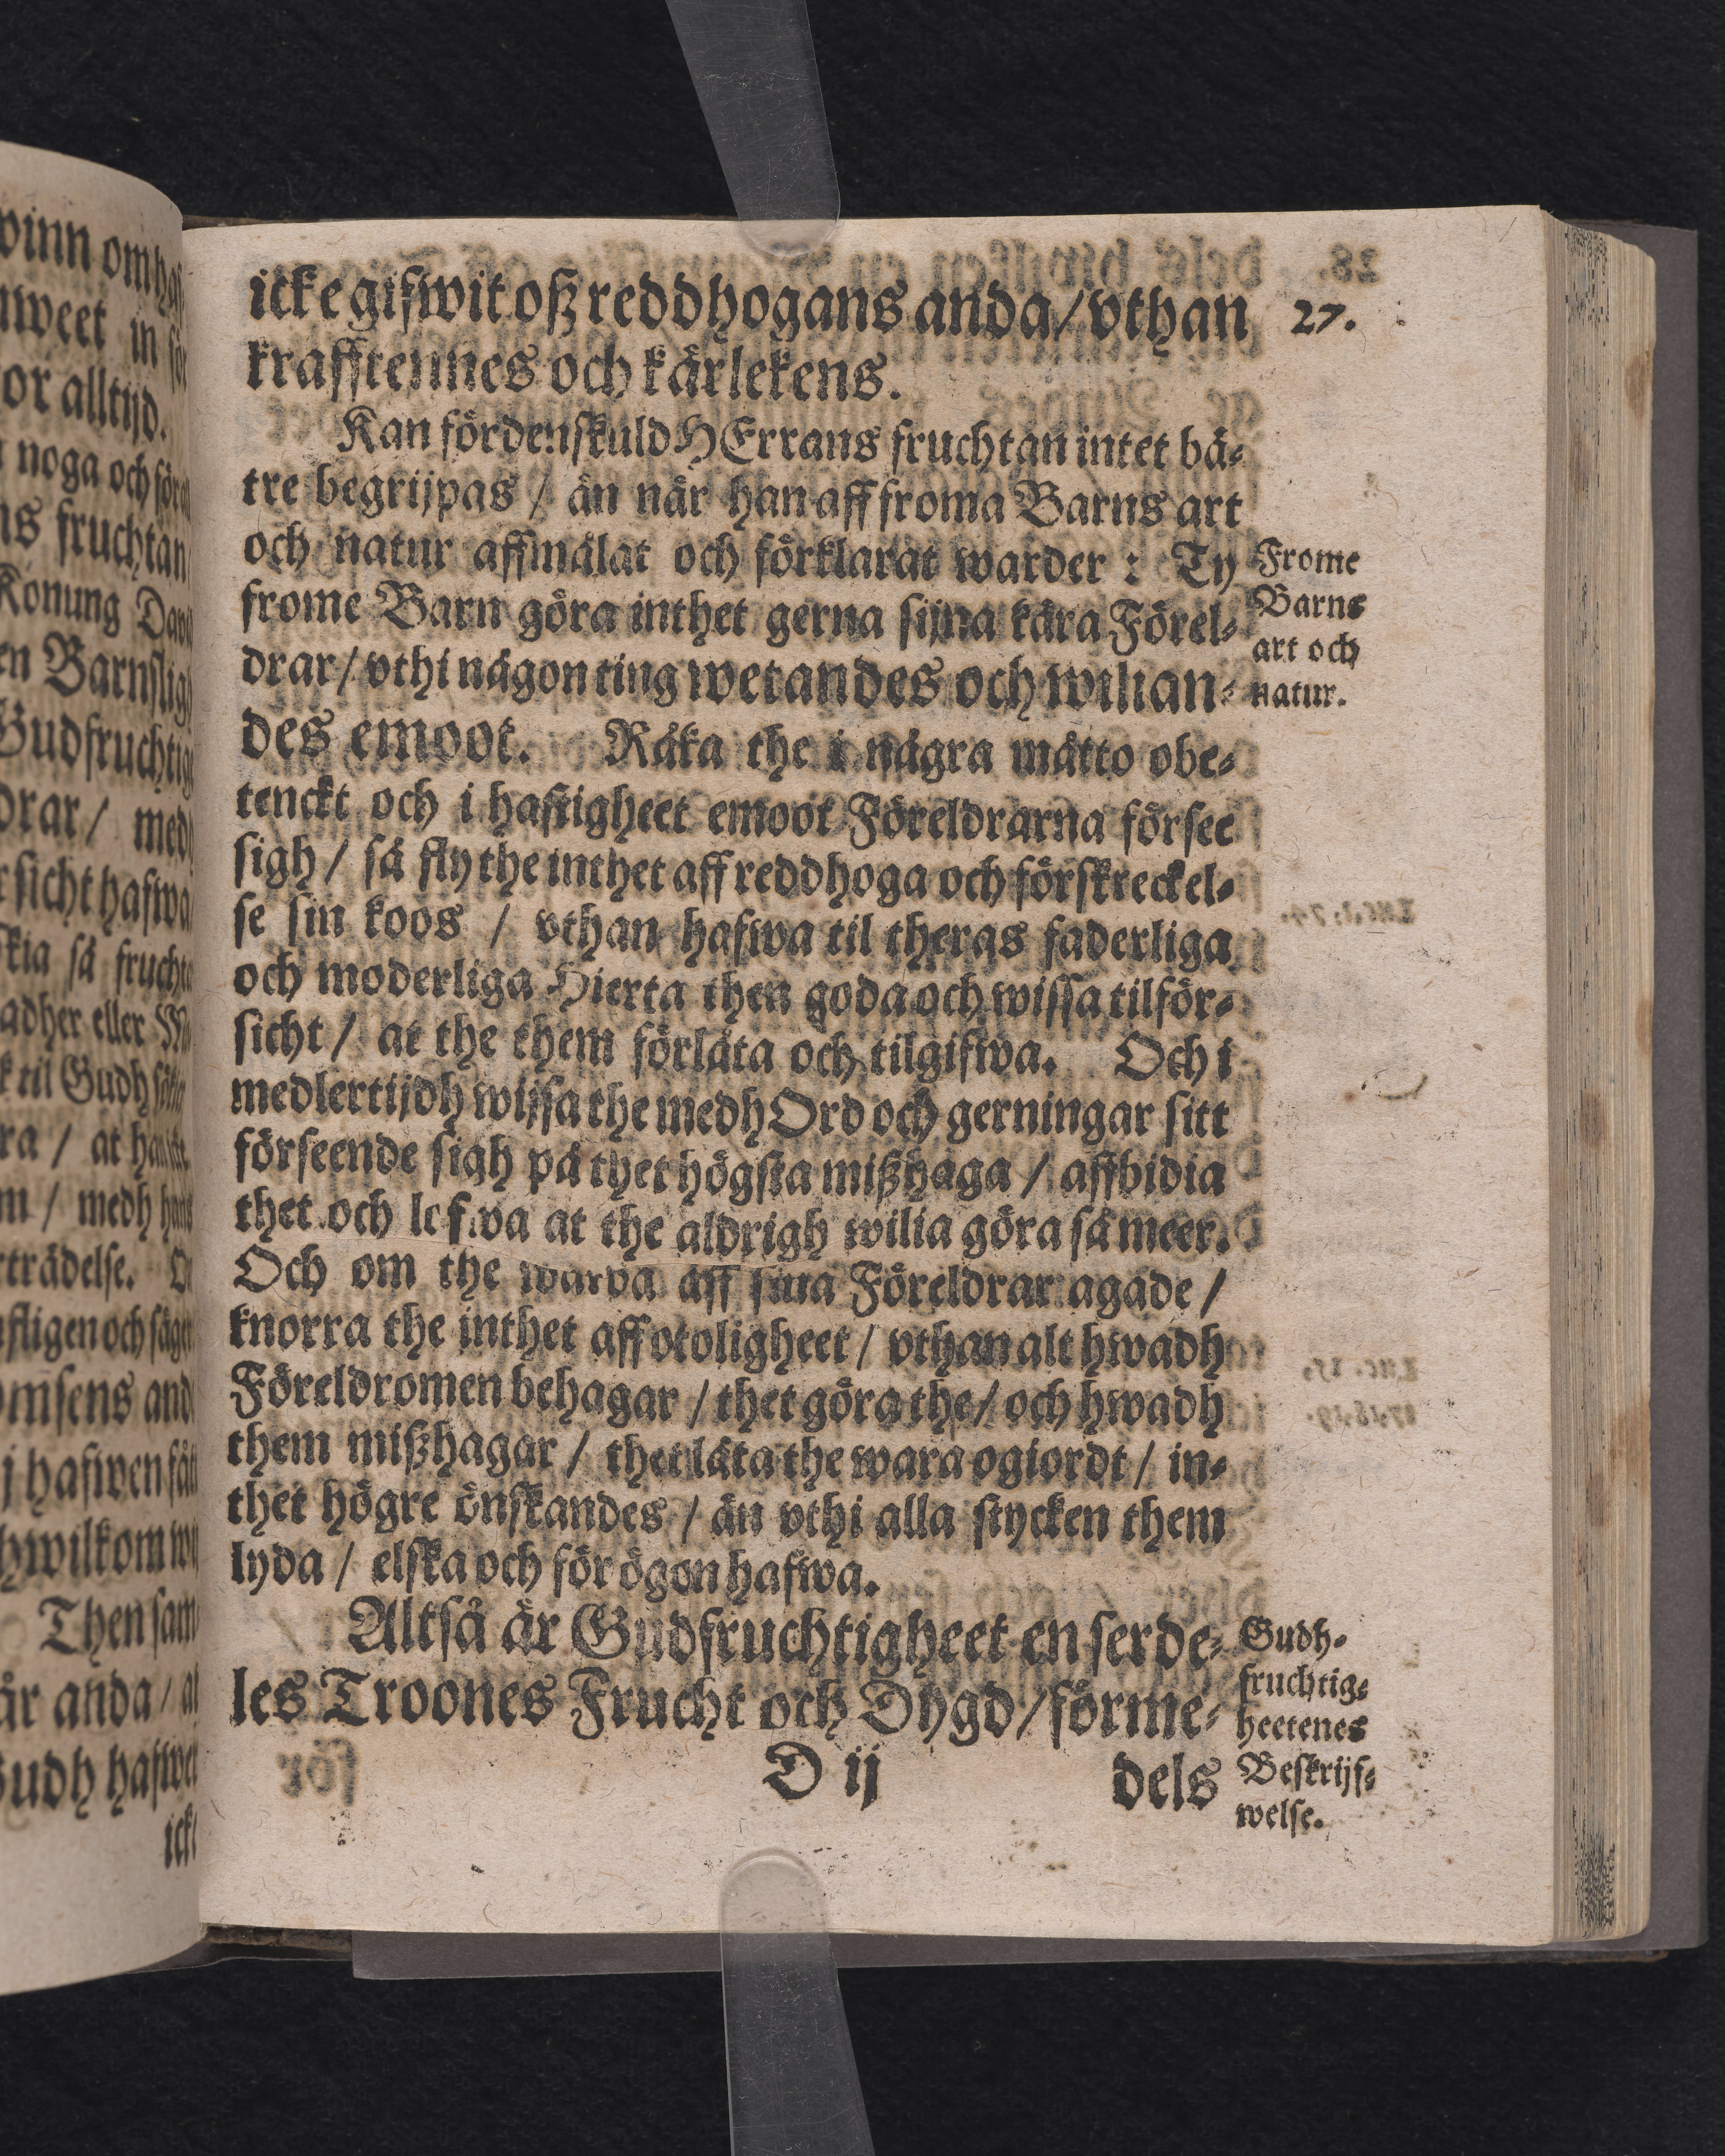 icke gifwit oß reddhogans anda / vthan
27.
krafftennes och kärlekens.
Kan fördenskuld HErrans fruchtan intet bä-
tre begrijpas / än när han aff froma Barns art
och natur affmålat och förklarat warder : Ty
frome Barn göra inthet gerna sijna kära Förel-
drar / vthi någon ting wetandes och wilian-
des emoot. Råka the i några måtto obe-
tenckt och i hastigheet emoot Föreldrarna försee
sigh / så fly the inthet aff reddhoga och förskreckel-
se sin koos / vthan hafwa til theras faderliga
och moderliga Hierta then goda och wissa tilför-
sicht / at the them förlåta och tilgifwa. Och i
medlertijdh wijsa the medh Ord och gerningar sitt
förseende sigh på thet högsta mißhaga / affbidia
thet och lofwa at the aldrigh wilia göra så meer.
Och om the warda aff sina Föreldrar agade /
knorra the inthet aff otoligheet / vthan alt hwadh
Föreldromen behagar / thet göra the / och hwadh
them mißhagar / thet låta the wara ogiordt / in-
thet högre önskandes / än vthi alla stycken them
lyda / elska och för ögon hafwa.
Altså är Gudfruchtigheet en serde-
les Troones Frucht och Dygd / förme-
D ij
dels
Frome
Barns
art och
natur.
Gudh-
fruchtig-
heetenes
Beskrijf-
welse.